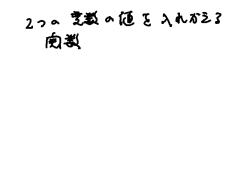 2つの変数の値を入れかえる
関数